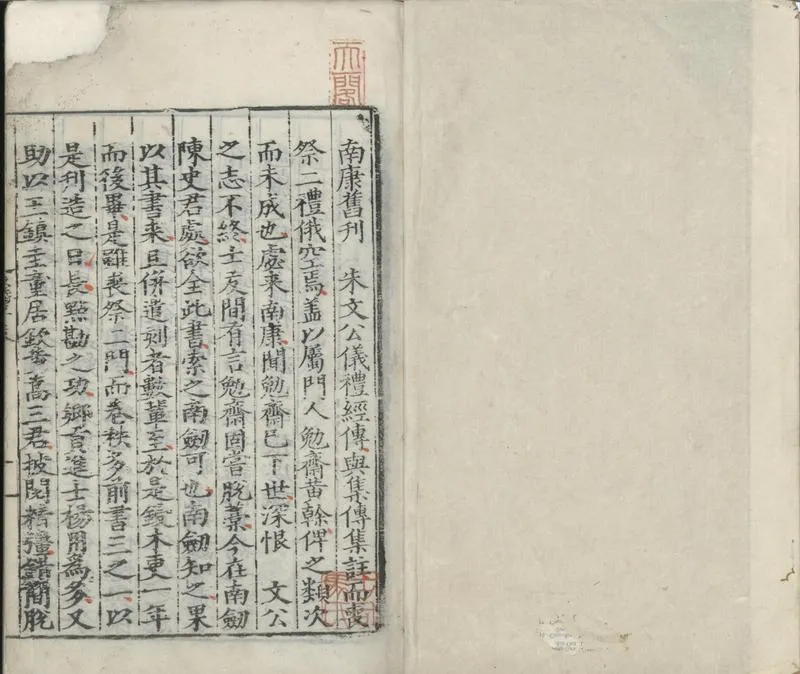 南康舊刊 朱文公儀禮經傳與集傳集註而喪
祭二禮俄空焉盖以屬門人勉齋黃榦俾之類次
而未成也處来南康聞勉齋已下世深恨 文公
之志不終士友間有言勉齋固嘗脫藁今在南劒
陳史君處欲全此書索之南劒可也南劒知之果
以其書来且併遣刻者數輩至於是鋟木更一年
而後畢是雖喪祭二門而卷秩多前書三之一以
是刊造之日長㸃勘之功鄉貢進士楊用為多又
助以王鎮圭童居欽
三君披閱精彊錯簡脫